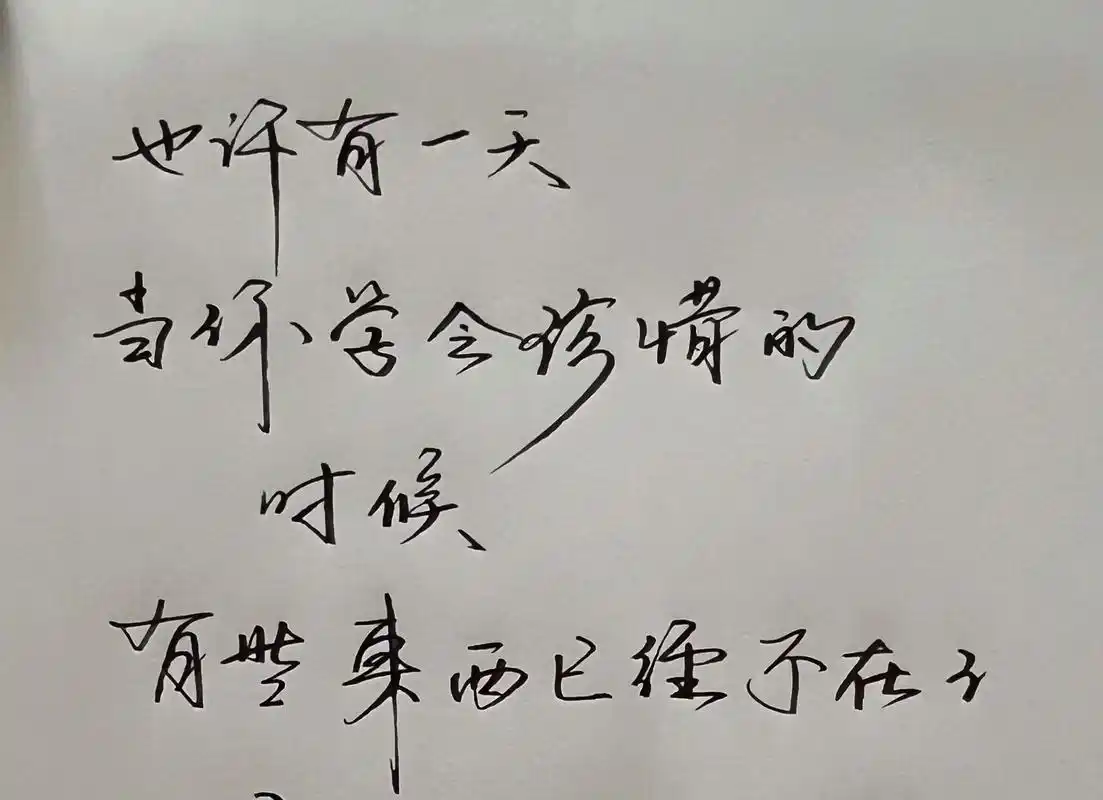 也许有一天
当你学会珍惜的
时候
有些東西已經不在了